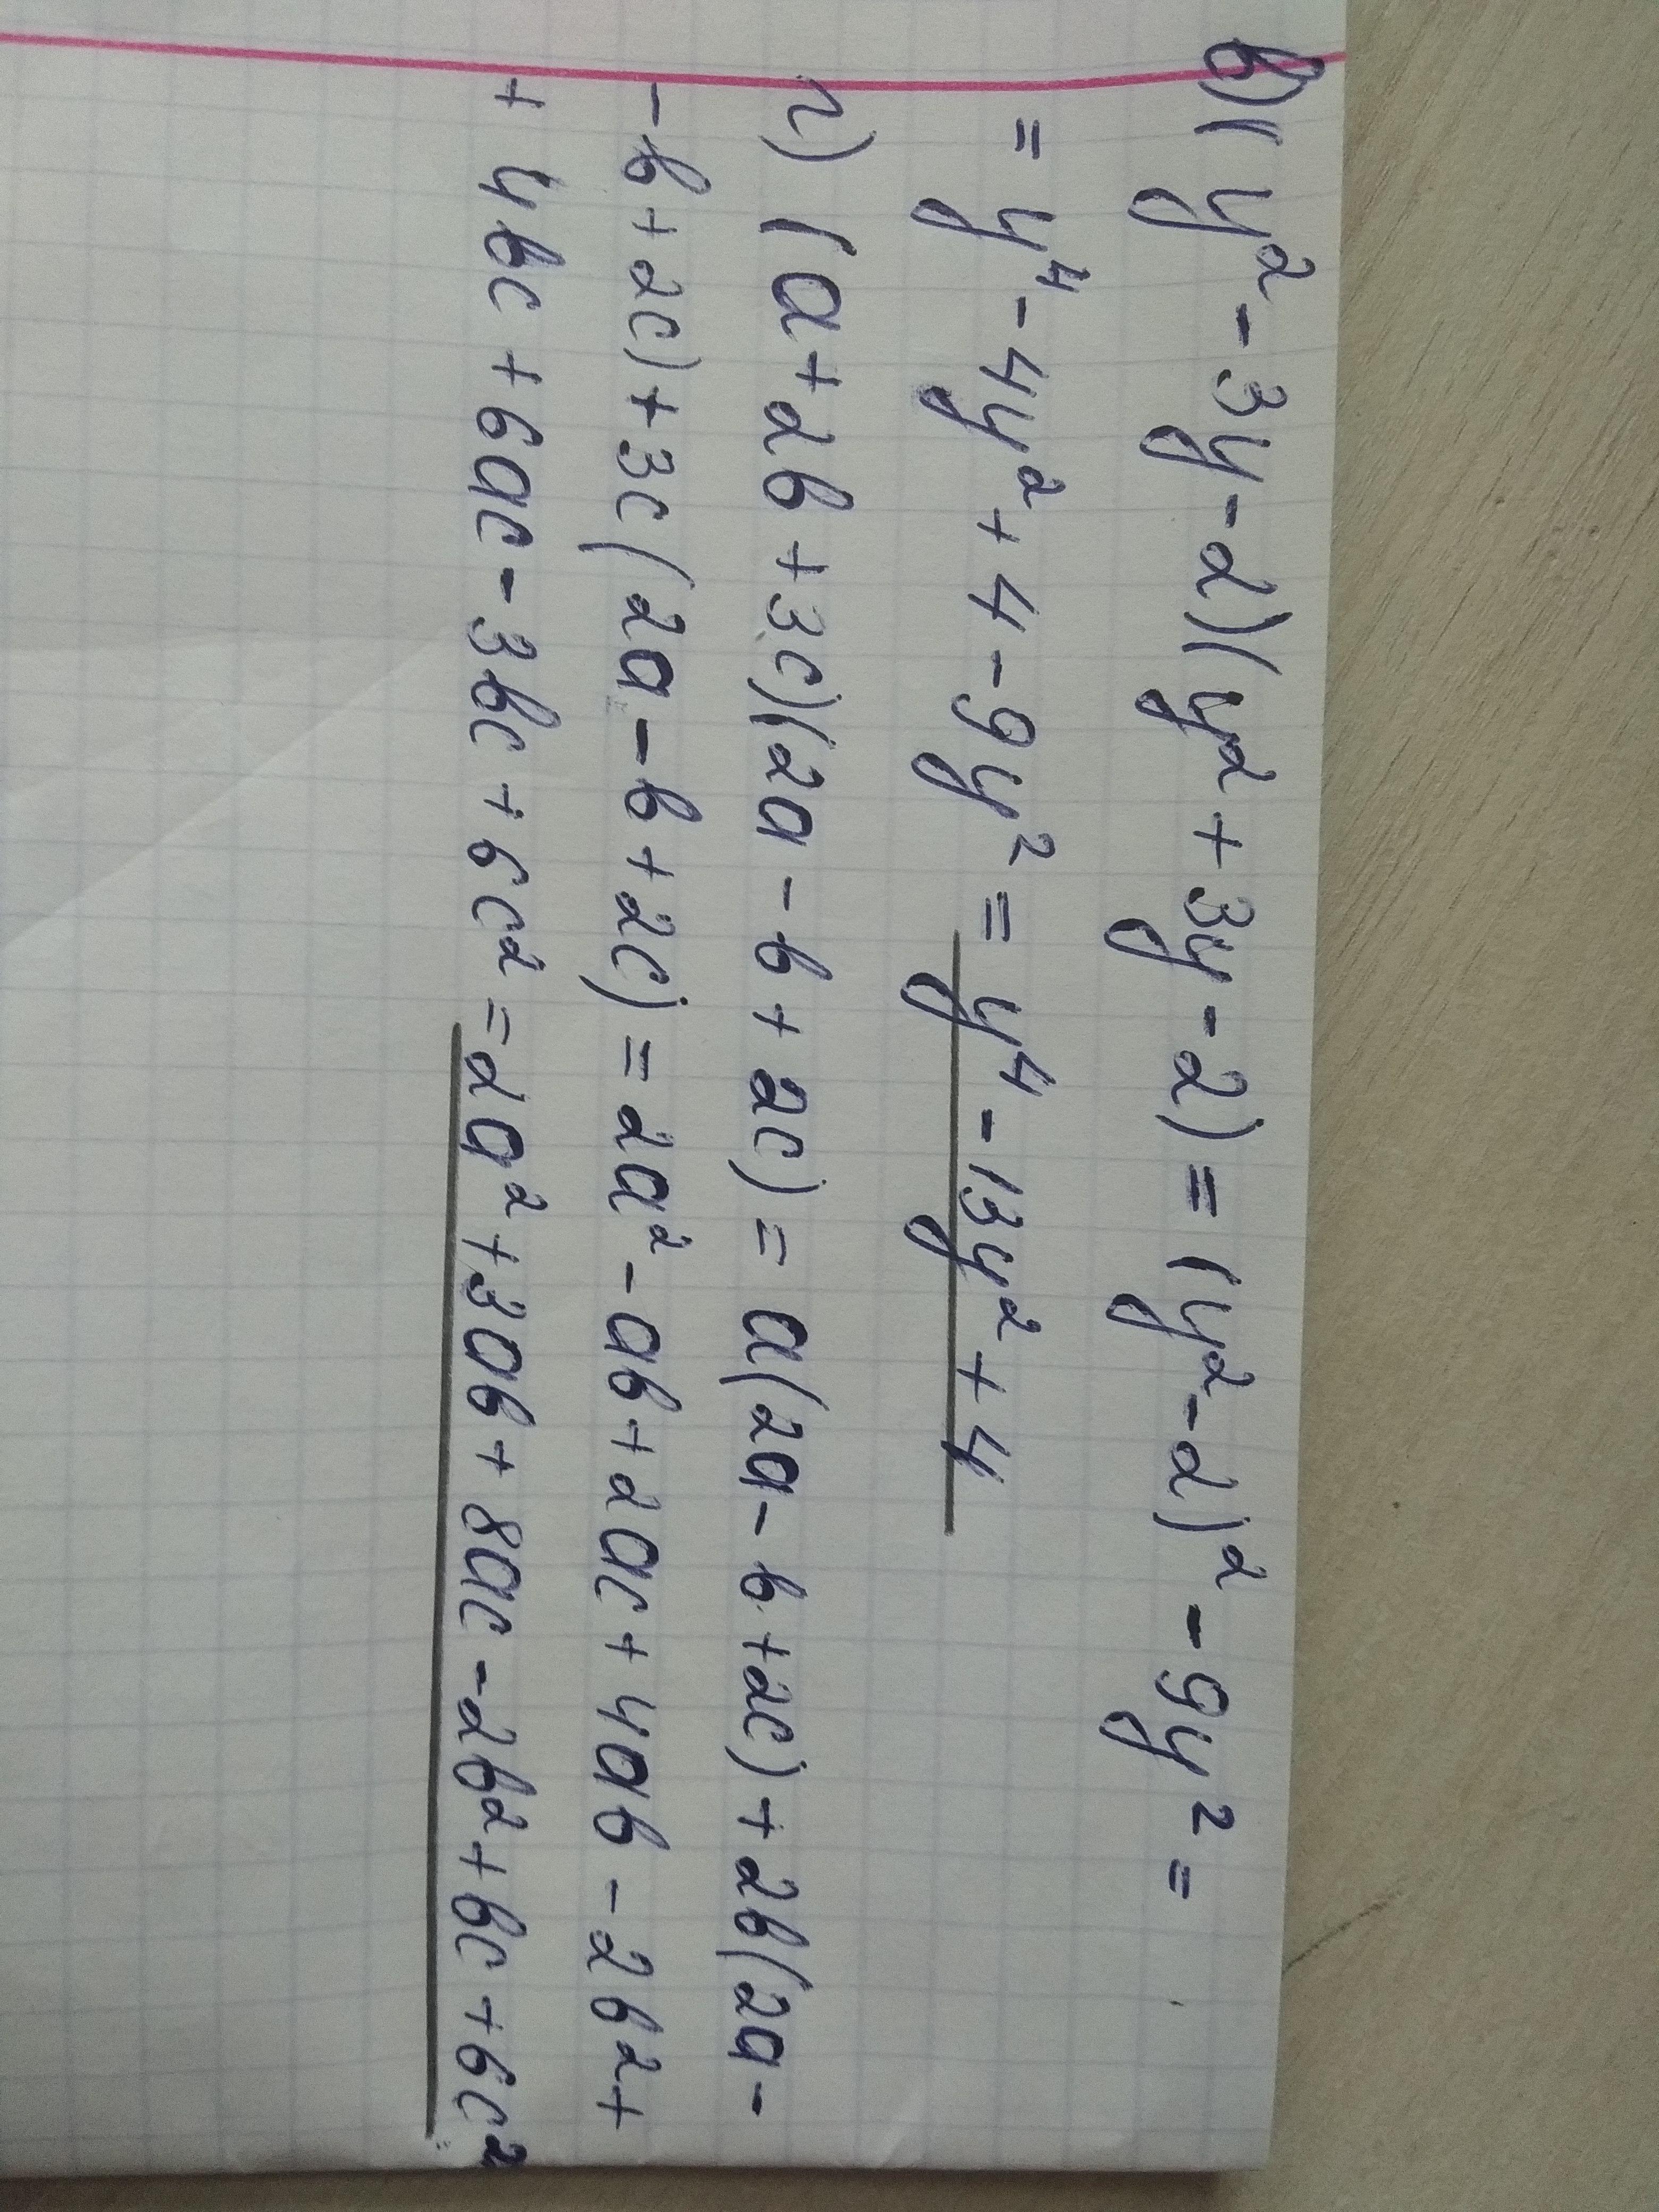 в) (y² - 3y - 2)(y² + 3y - 2) = (y² - 2)² - 9y² =
= y⁴ - 4y² + 4 - 9y² = y⁴ - 13y² + 4
г) (a + 2b + 3c)(2a - b + 2c) = a(2a - b + 2c) + 2b(2a -
- b + 2c) + 3c(2a - b + 2c) = 2a² - ab + 2ac + 4ab - 2b² +
+ 4bc + 6ac - 3bc + 6c² = 2a² + 3ab + 8ac - 2b² + bc + 6c²